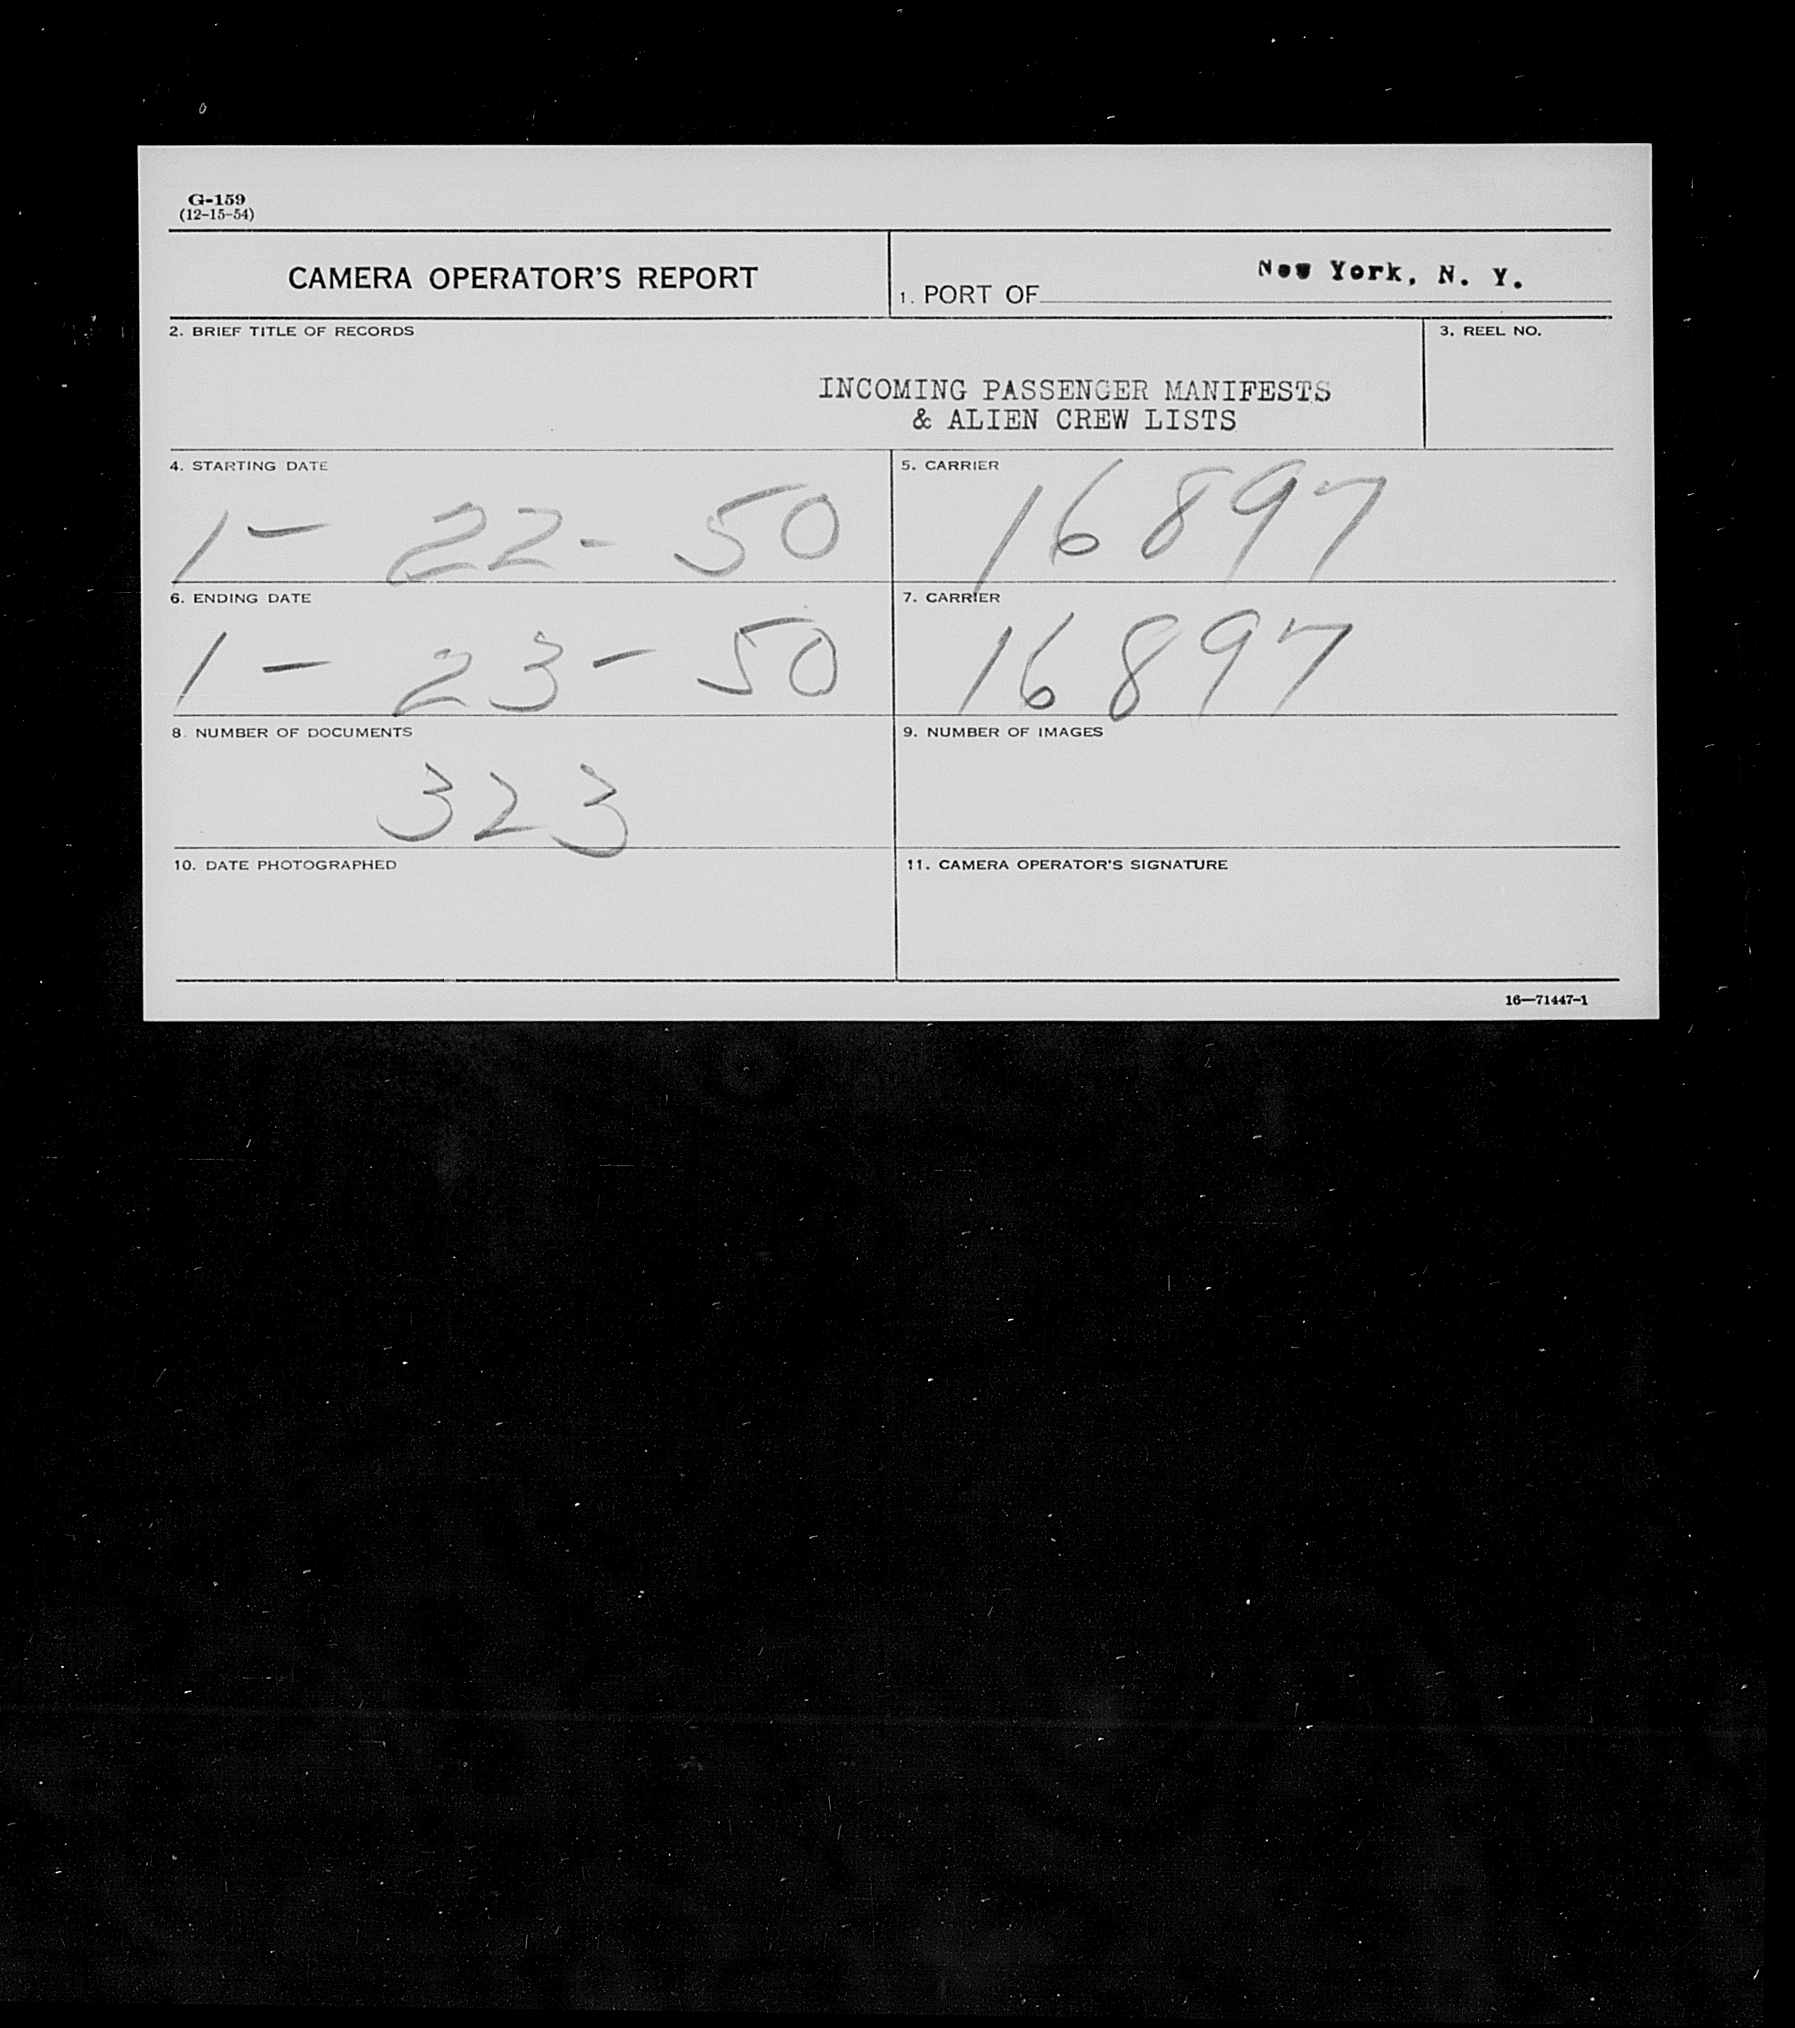 G-159
(12-15-54)
CAMERA OPERATOR'S REPORT
1. PORT OF New York, N. Y.
2. BRIEF TITLE OF RECORDS
3. REEL NO.
INCOMING PASSENGER MANIFESTS
& ALIEN CREW LISTS
4. STARTING DATE
1- 22- 50
5. CARRIER
16897
6. ENDING DATE
1- 23- 50
7. CARRIER
16897
8. NUMBER OF DOCUMENTS
323
9. NUMBER OF IMAGES
10. DATE PHOTOGRAPHED
11. CAMERA OPERATOR'S SIGNATURE
16—71447-1